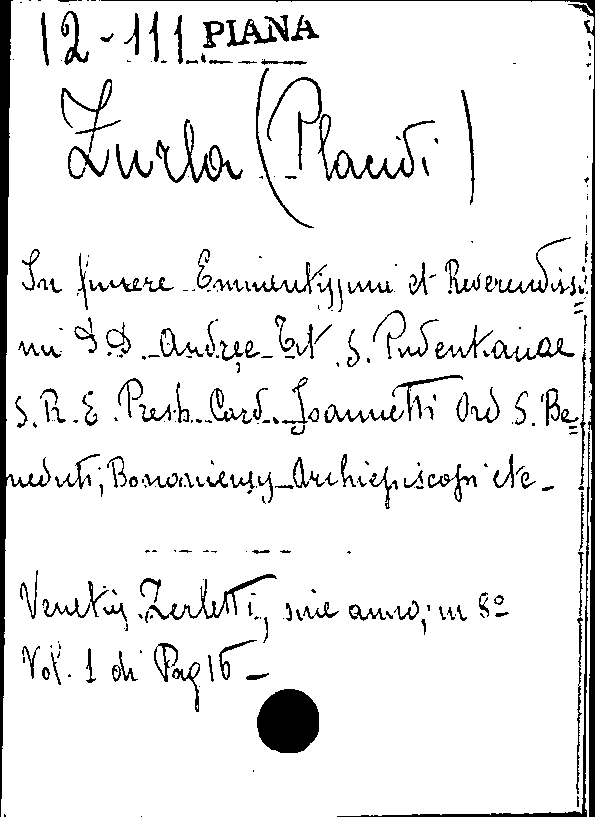 12-111 PIANA
Zurla (Placidi)
In funere Eminentissimi et Reverendiss=
mi D.D. Andreę Tit. S. Pudentianae
S. R. E. Presb. Card. Joannetti Ord S. Be=
nedicti, Bononiensis Archiepiscopi etc -
Venetiis, Zerletti, sine anno; in 8º
Vol. 1 di Pag 16 -